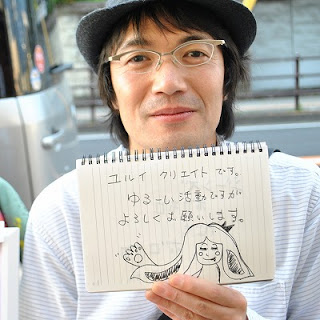 ユルイ クリエイトです。
ゆるーい活動ですが
よろしくお願いします。